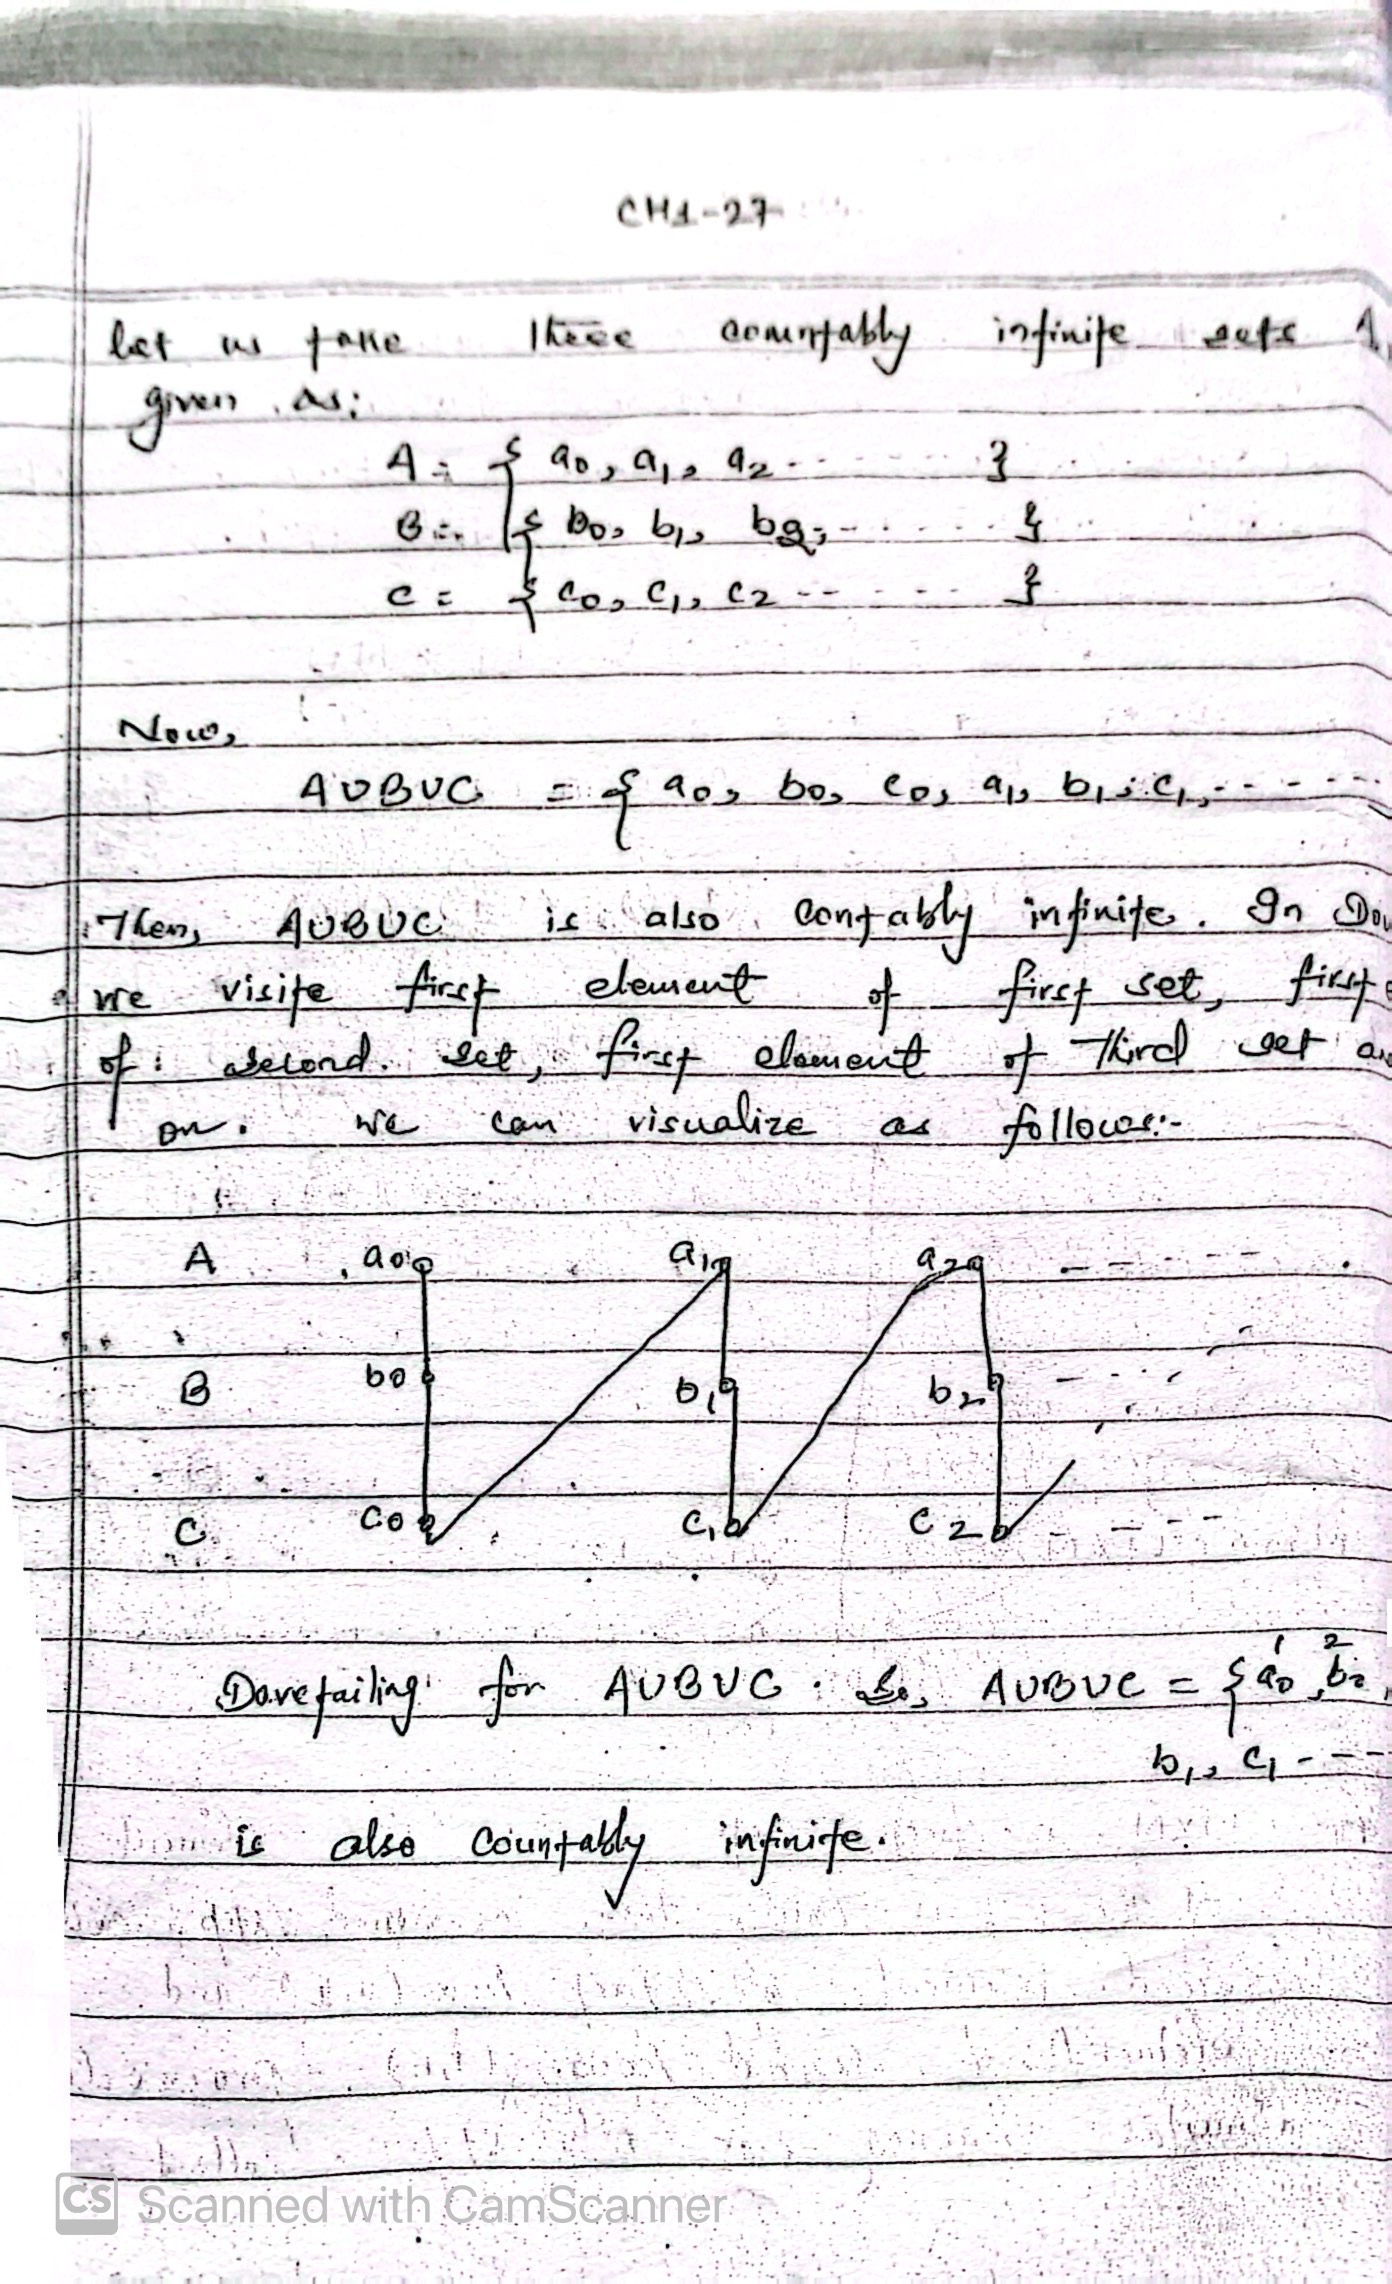 CH1-27
let us take three countably infinite sets A,
given as:
A = { a0, a1, a2 ----- }
B = { b0, b1, b2, ----- }
C = { c0, c1, c2 ----- }
Now,
AUBUC = { a0, b0, c0, a1, b1, c1, -----
Then, AUBUC is also contably infinite. In Dov
we visite first element of first set, first e
of second set, first element of third set an
on. we can visualize as follows:-
A a0 a1 a2 -----
B b0 b1 b2 -----
C c0 c1 c2 -----
Dovetailing for AUBUC. So, AUBUC = { a0, b0,
1 2
b1, c1 ----
is also countably infinite.
CS Scanned with CamScanner